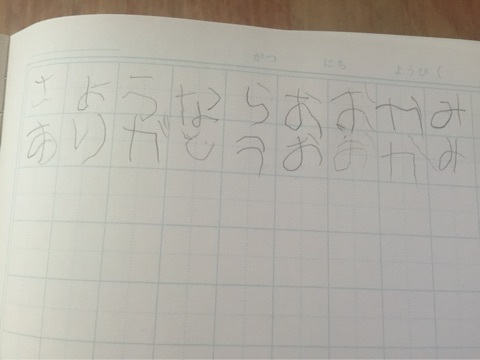 がつ にち ようび（
さようならおおかみ
ありがとうおおかみ